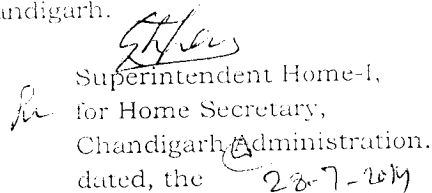 andigarh.
Superintendent Home-I,
for Home Secretary,
Chandigarh Administration.
dated, the 28-7-2014